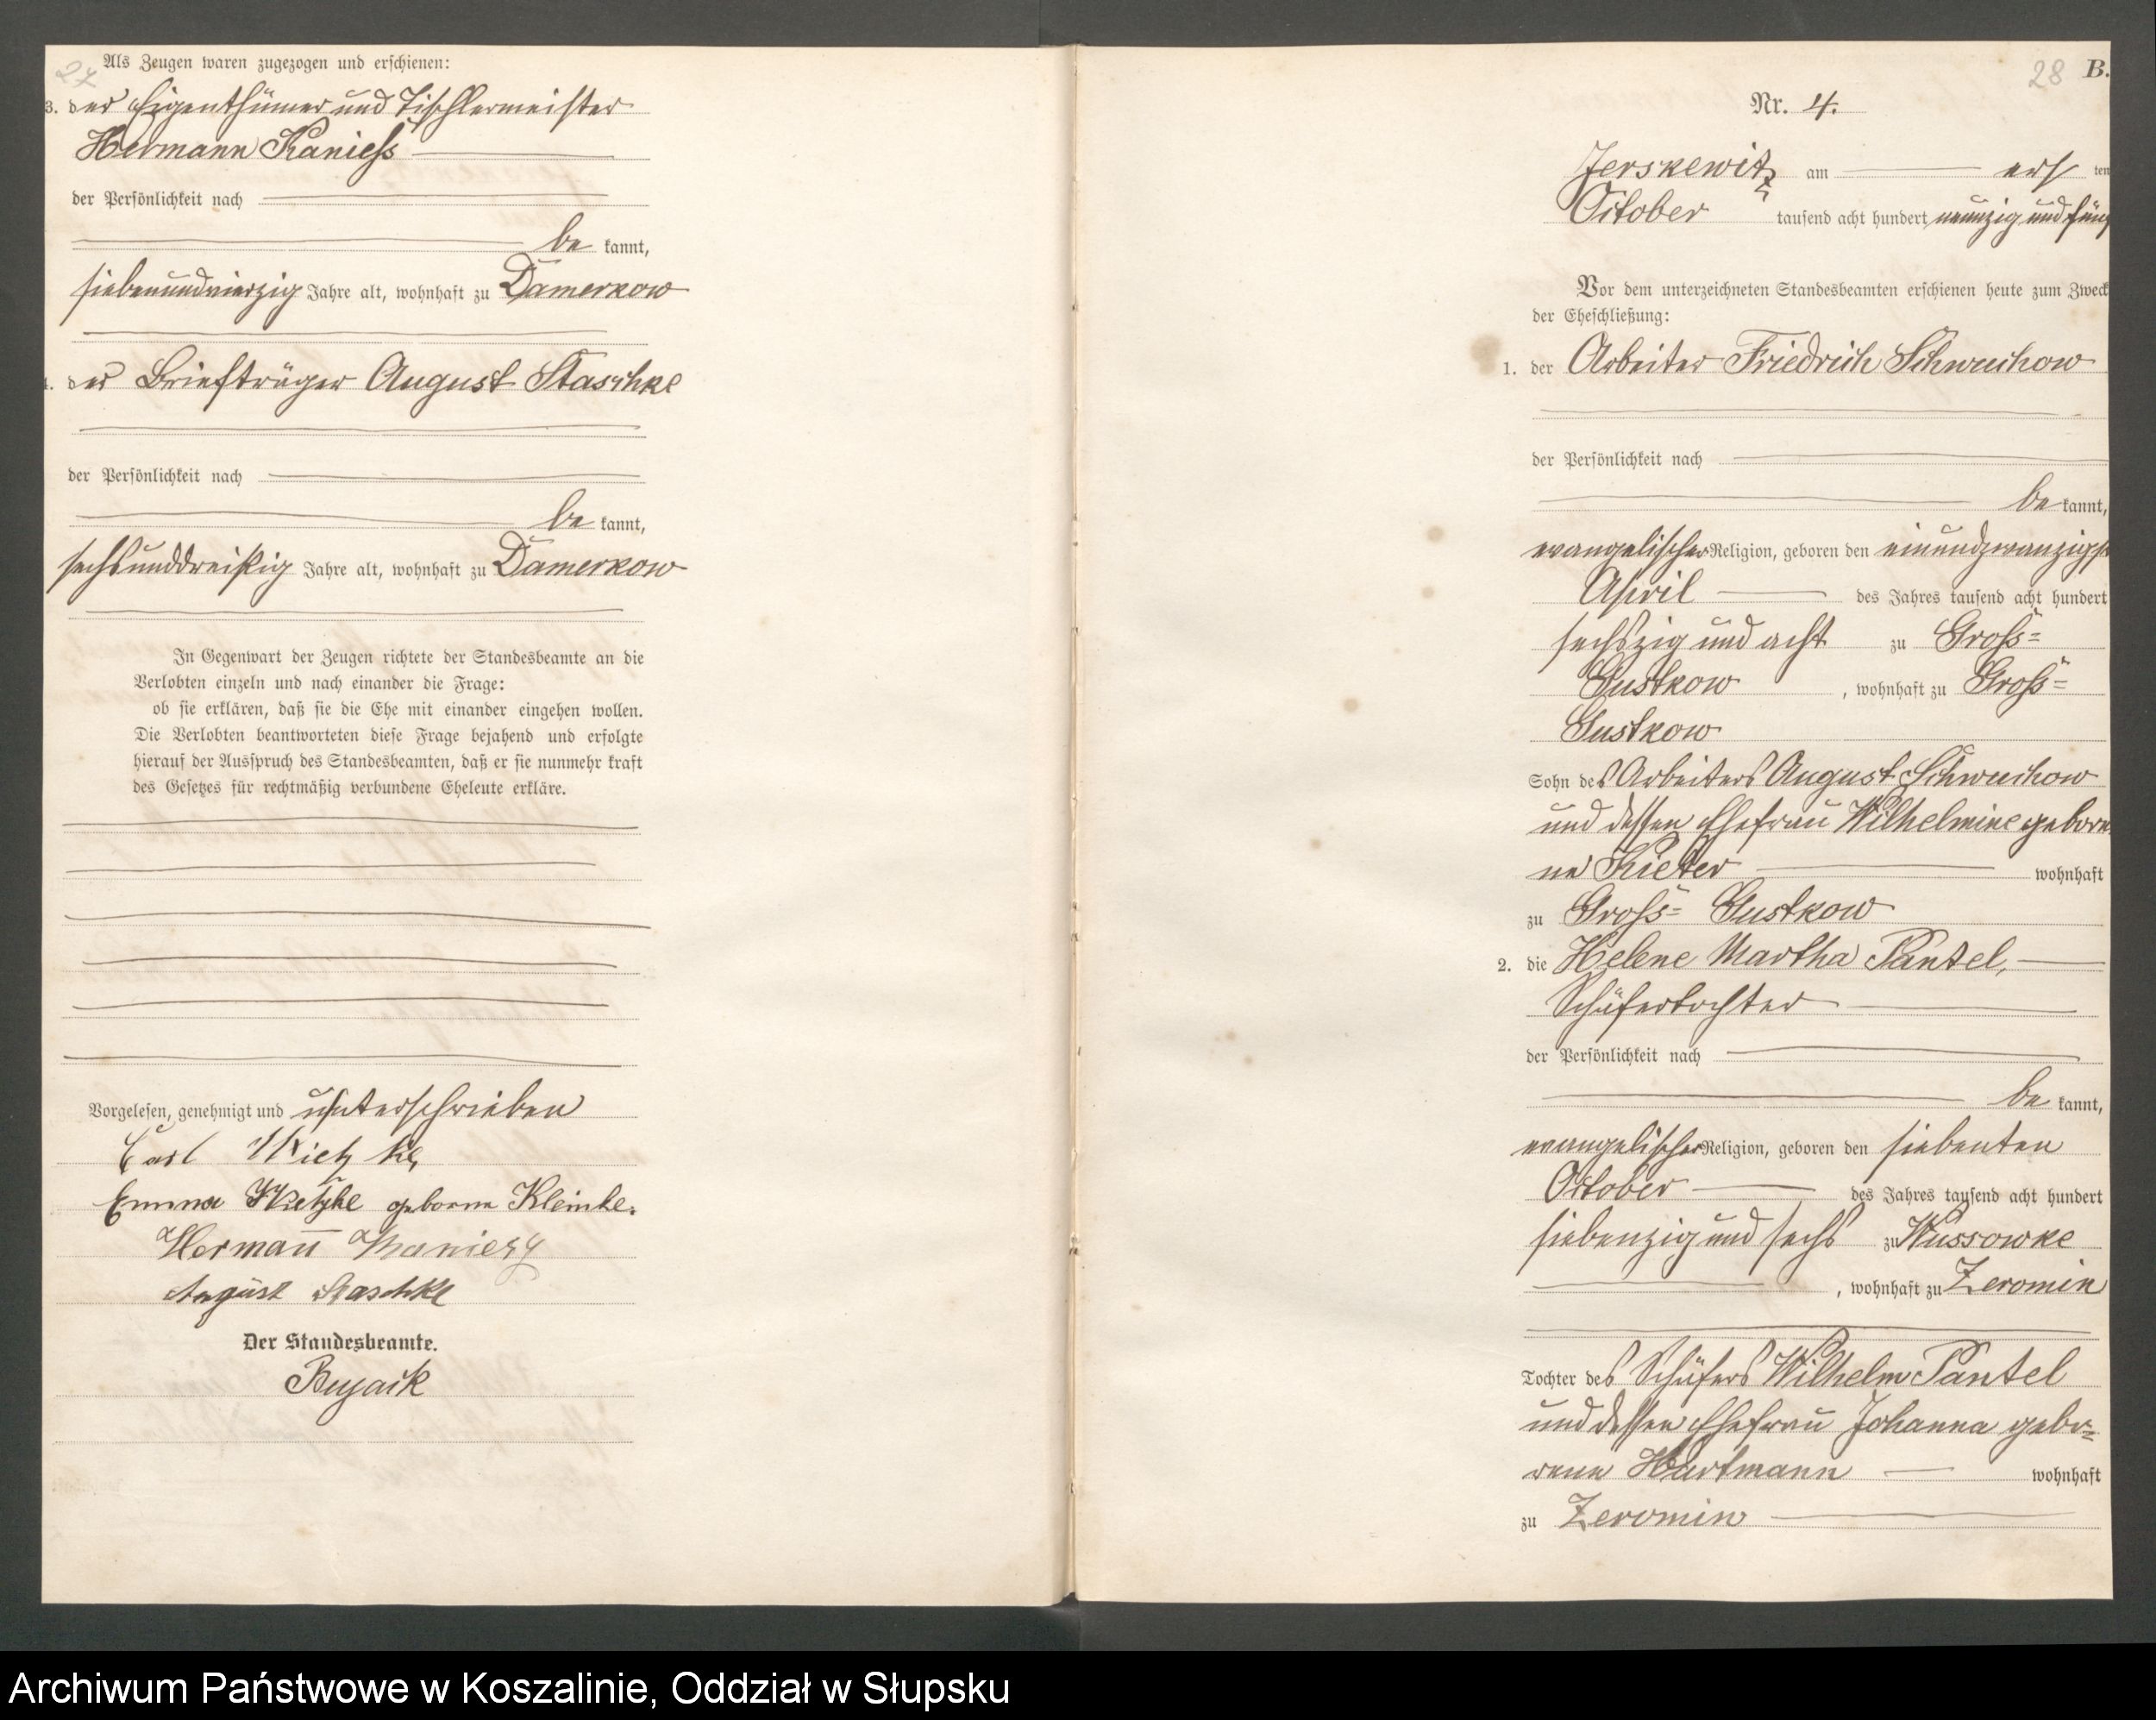 27
Als Zeugen waren zugezogen und erschienen:
3. der Eigenthümer und Tischlermeister
Hermann Kaniess
der Persönlichkeit nach
be kannt,
siebenundvierzig Jahre alt, wohnhaft zu Damerkow
4. der Briefträger August Staschke
der Persönlichkeit nach
be kannt,
sechsunddreißig Jahre alt, wohnhaft zu Damerkow
In Gegenwart der Zeugen richtete der Standesbeamte an die
Verlobten einzeln und nach einander die Frage:
ob sie erklären, daß sie die Ehe mit einander eingehen wollen.
Die Verlobten beantworteten diese Frage bejahend und erfolgte
hierauf der Ausspruch des Standesbeamten, daß er sie nunmehr kraft
des Gesetzes für rechtmäßig verbundene Eheleute erkläre.
Vorgelesen, genehmigt und unterschrieben
Carl Wietzke
Emma Wietzke geborne Kleinke.
Hermann
August Staschke
Der Standesbeamte.
28 B.
Nr. 4.
Jerskewitz am erſ ten
October tausend acht hundert neunzig und fünf
Vor dem unterzeichneten Standesbeamten erschienen heute zum Zweck
der Eheschließung:
1. der Arbeiter Friedrich Schwuchow
der Persönlichkeit nach
be kannt,
evangelischer Religion, geboren den einundzwanzigst
April des Jahres tausend acht hundert
sechszig und acht zu Gross=
Gustkow , wohnhaft zu Gross=
Gustkow
Sohn des Arbeiters August Schwuchow
und dessen Ehefrau Wilhelmine gebore
ne Kieter wohnhaft
zu Gross= Gustkow
2. die Helene Martha Pantel,
Schäfertochter
der Persönlichkeit nach
be kannt,
evangelischer Religion, geboren den siebenten
October des Jahres tausend acht hundert
siebenzig und sechs zu Wussowke
, wohnhaft zu Zeromin
Tochter des Schäfers Wilhelm Pantel
und dessen Ehefrau Johanna gebo=
rene Hartmann wohnhaft
zu Zeromin
Archiwum Państwowe w Koszalinie, Oddział w Słupsku